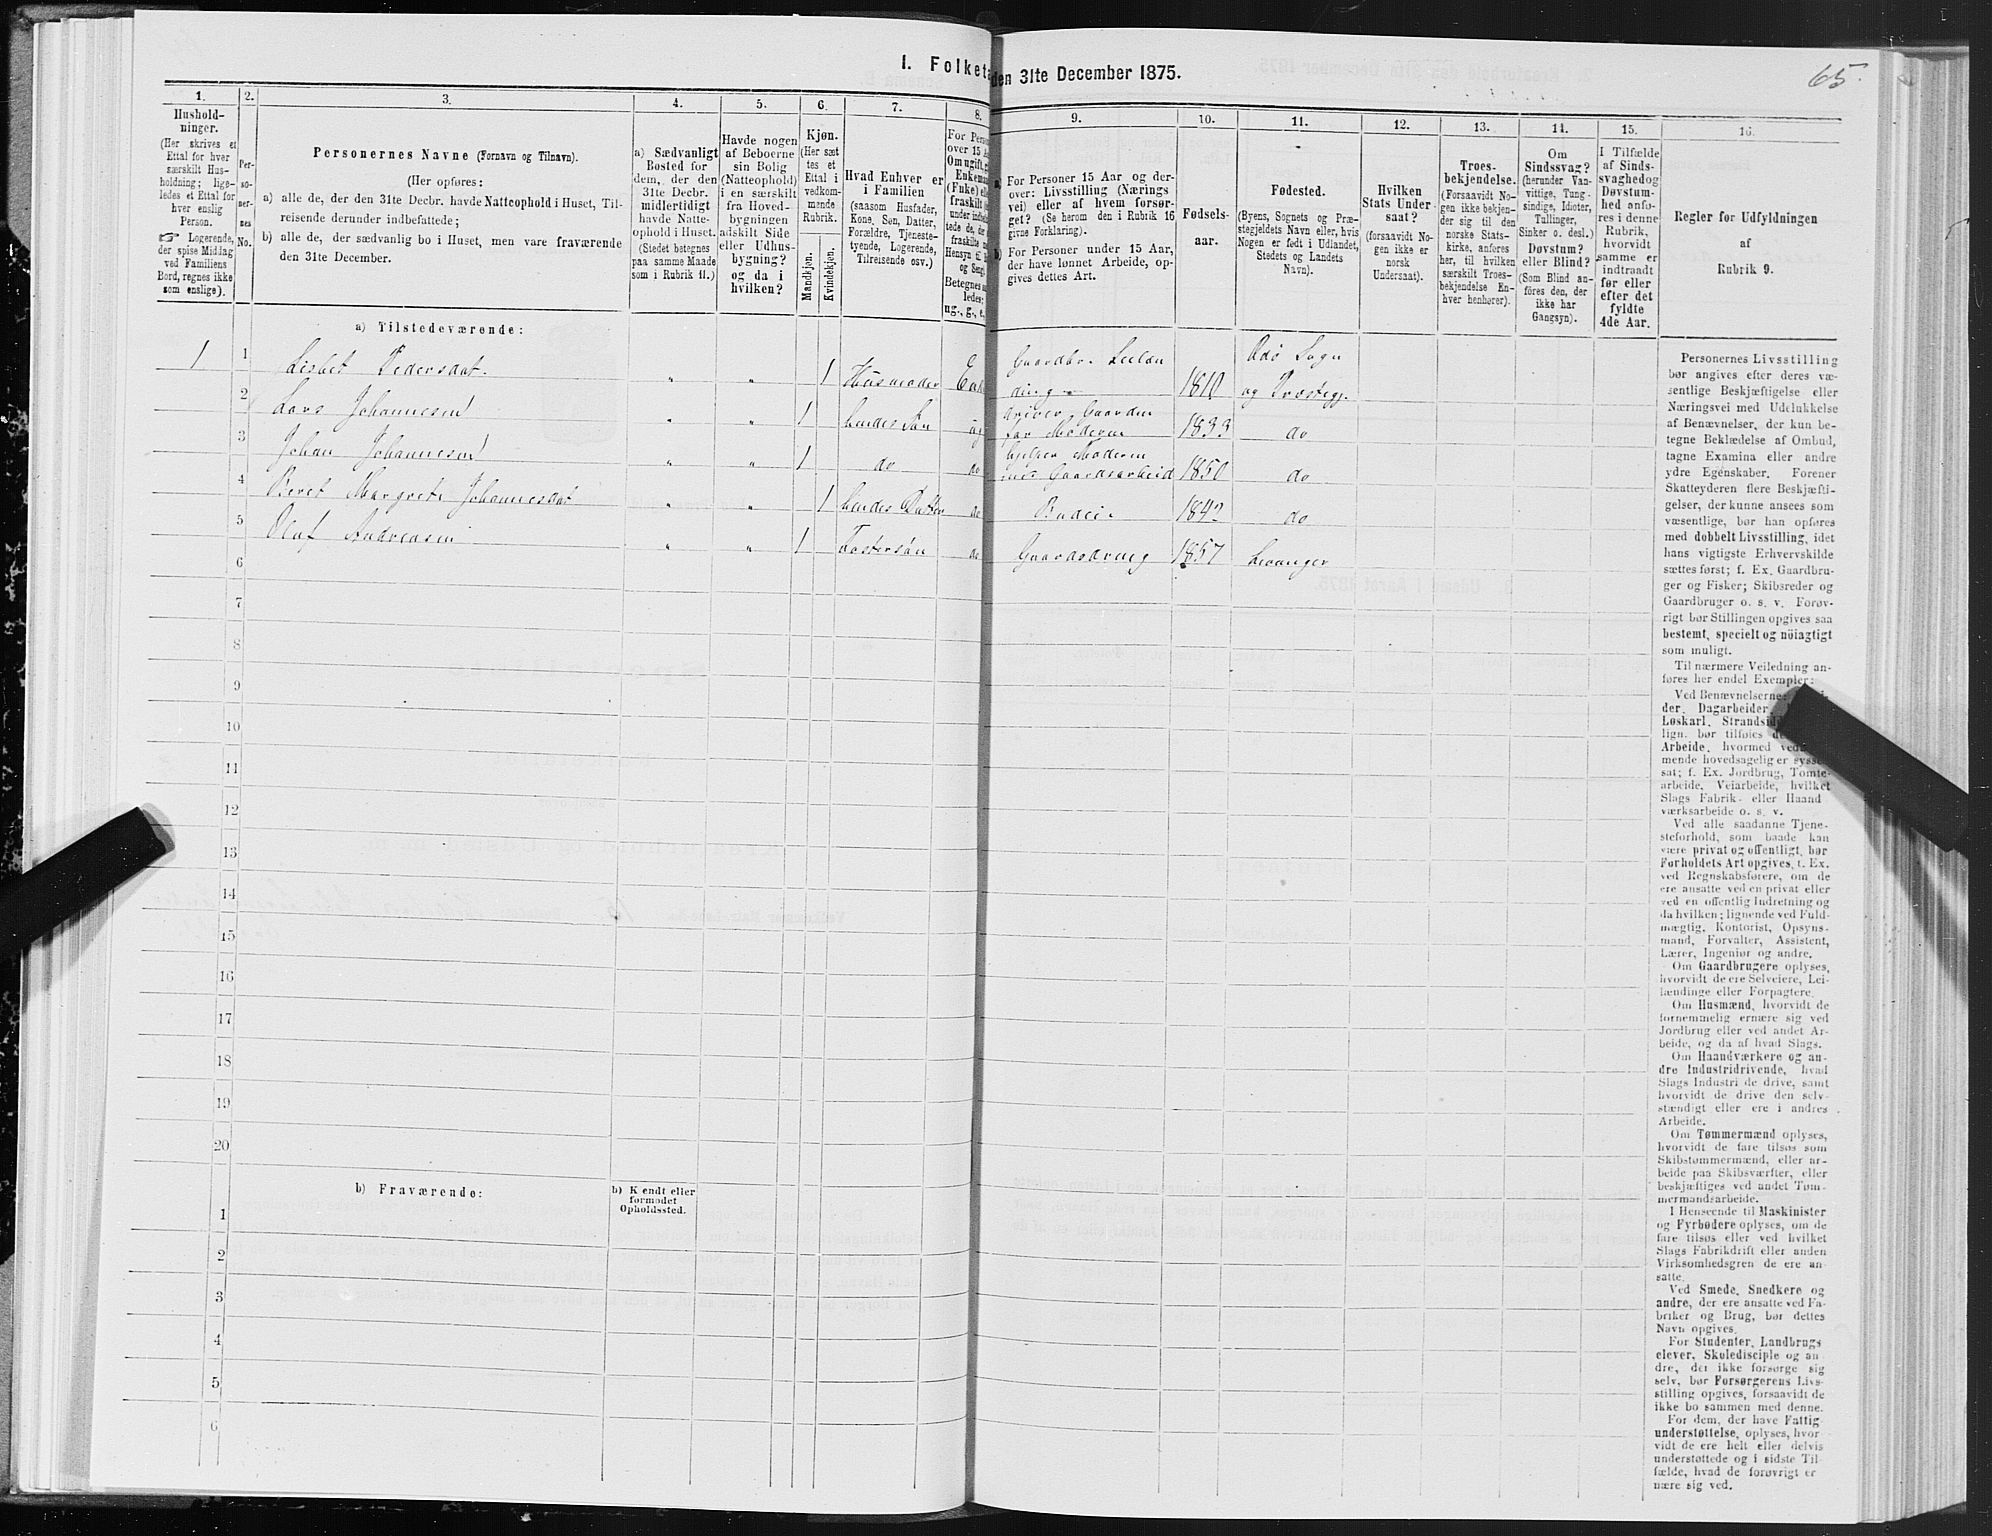 65
I. Folketæ
den 31te December 1875.
1.
2.
3.
4.
5.
6.
7.
8.
9.
10.
11.
12.
13.
14.
15.
16.
Hushold-
ninger.
(Her skrives et
Ettal for hver
særskilt Hus-
holdning; lige-
ledes et Ettal for
hver enslig
Person.
☞ Logerende,
der spise Middag
ved Familiens
Bord, regnes ikke
som enslige).
Per-
so-
ner-
nes
No.
Personernes Navne (Fornavn og Tilnavn).
(Her opføres:
a) alle de, der den 31te Decbr. havde Natteophold i Huset, Til-
reisende derunder indbefattede;
b) alle de, der sædvanlig bo i Huset, men vare fraværende
den 31te December.
a) Sædvanligt
Bosted for
dem, der den
31te Decbr.
midlertidigt
havde Natte-
ophold i Huset.
(Stedet betegnes
paa samme Maade
som i Rubrik 11.)
Havde nogen
af Beboerne
sin Bolig
(Natteophold)
i en særskilt
fra Hoved-
bygningen
adskilt Side
eller Udhus-
bygning?
og da i
hvilken?
Kjøn.
(Her sæt
tes et
Ettal i
vedkom-
mende
Rubrik.
Mandkjøn.
Kvindekjøn.
Hvad Enhver er
i Familien
(saasom Husfader,
Kone, Søn, Datter,
Forældre, Tjeneste-
tyende, Logerende,
Tilreisende osv.)
For Perso
over 15 A
Om ugift, g
Enkema
(Fuke) ell
fraskilt
under indbe
tede de, de
fraskilte
Hensyn til
og Seng
Betegnes
ledes:
ug., g., e.,
a) For Personer 15 Aar og der-
over: Livsstilling (Nærings
vei) eller af hvem forsør-
get? (Se herom den i Rubrik 16
givne Forklaring).
b) For Personer under 15 Aar,
der have lønnet Arbeide, op-
gives dettes Art.
Fødsels-
aar.
Fødested.
(Byens, Sognets og Præ-
stegjeldets Navn eller, hvis
Nogen er født i Udlandet,
Stedets og Landets
Navn).
Hvilken
Stats Under-
saat?
(forsaavidt No-
gen ikke er
norsk
Undersaat).
Troes-
bekjendelse.
(Forsaavidt No-
gen ikke bekjen-
der sig til den
norske Stats-
kirke, anføres
her, til hvilken
særskilt Troes-
bekjendelse En-
hver henhører).
Om
Sindssvag?
(herunder Van-
vittige, Tung-
sindige, Idioter,
Tullinger,
Sinker o. desl.)
Døvstum?
eller Blind?
(Som Blind an-
føres den, der
ikke har
Gangsyn).
I Tilfælde
af Sinds-
svaghed og
Døvstum-
hed anfø-
res i denne
Rubrik,
hvorvidt
samme er
indtraadt
før eller
efter det
fyldte
4de Aar.
Regler for Udfyldningen
af
Rubrik 9.
a) Tilstedeværende:
1 1 Lisbet Pedersdat. " " 1 Husmoder Enke Gaardbr. Leilæn ding 1810 Ødø Sogn og Præstegj.
2 Lars Johannesen " " 1 hendes Søn ug driver Gaarden for Moderen 1833 do
3 Johan Johannesen " " 1 do do hjelper Moderen med Gaardsarbeid 1850 do
4 Beret Margrete Johannesdat " " 1 hendes Datter do Budeie 1842 do
5 Oluf Andreasen " " 1 Fostersøn do Gaardsdreng 1857 Levanger
6
7
8
9
10
11
12
13
14
15
16
17
18
19
20
b) Fraværende:
b) Kendt eller
formodet
Opholdssted.
1
2
3
4
5
6
Personernes Livsstilling
bør angives efter deres væ-
sentlige Beskjæftigelse eller
Næringsvei med Udelukkelse
af Benævnelser, der kun be-
tegne Beklædelse af Ombud,
tagne Examina eller andre
ydre Egenskaber. Forener
Skatteyderen flere Beskjæfti-
gelser, der kunne ansees som
væsentlige, bør han opføres
med dobbelt Livsstilling, idet
hans vigtigste Erhvervskilde
sættes først; f. Ex. Gaardbru-
ger og Fisker; Skibsreder og
Gaardbruger o. s. v. Forøv-
rigt bør Stillingen opgives saa
bestemt, specielt og nøiagtigt
som muligt.
Til nærmere Veiledning an-
føres her endel Exempler:
Ved Benævnelserne:
der, Dagarbeider,
Løskarl, Strandsid
lign. bør tilføies
Arbeide, hvormed ved
mende hovedsagelig er syssel
sat; f. Ex. Jordbrug, Tomte-
arbeide, Veiarbeide, hvilket
Slags Fabrik- eller Haand
værksarbeide o. s. v.
Ved alle saadanne Tjene-
steforhold, som baade kan
være privat og offentligt, bør
Forholdets Art opgives, t. Ex.
ved Regnskabsførere, om de
ere ansatte ved en privat eller
ved en offentlig Indretning og
da hvilken; lignende ved Fuld-
mægtig, Kontorist, Opsyns-
mand, Forvalter, Assistent,
Lærer, Ingeniør og andre.
Om Gaardbrugere oplyses,
hvorvidt de ere Selveiere, Lei-
lændinge eller Forpagtere.
Om Husmænd, hvorvidt de
fornemmelig ernære sig ved
Jordbrug eller ved andet Ar-
beide, og da af hvad Slags.
Om Haandværkere og an-
dre Industridrivende, hvad
Slags Industri de drive, samt
hvorvidt de drive den selv-
stændigt eller ere i andres
Arbeide.
Om Tømmermænd oplyses,
hvorvidt de fare tilsøs som
Skibstømmermænd, eller ar-
beide paa Skibsværfter, eller
beskjæftiges ved andet Tøm-
mermandsarbeide.
I Henseende til Maskinister
og Fyrbødere oplyses, om de
fare tilsøs eller ved hvilket
Slags Fabrikdrift eller anden
Virksomhedsgren de ere an-
satte.
Ved Smede, Snedkere og
andre, der ere ansatte ved Fa-
briker og Brug, bør dettes
Navn opgives.
For Studenter, Landbrugs
elever, Skoledisciple og an
dre, der ikke forsørge sig
selv, bør Forsørgerens Livs-
stilling opgives, forsaavidt de
ikke bo sammen med denne.
For dem, der have Fattig-
understøttelse, oplyses, hvor-
vidt de ere helt eller delvis
understøttede og i sidste Til-
fælde, hvad de forøvrigt er
nære sig ved.